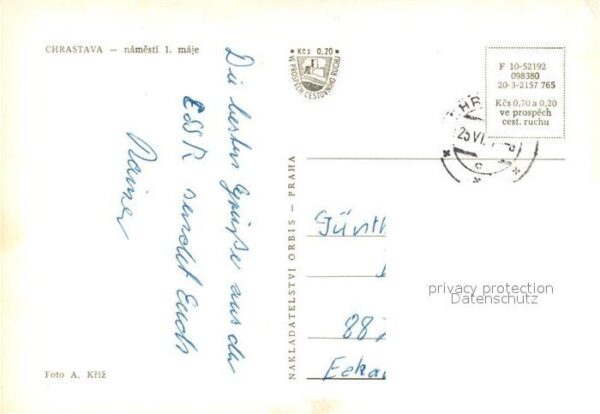 CHRASTAVA – náměstí 1. máje
Die besten Grüße aus der
ČSSR sendet Euch
Rainer
Foto A. Kříž
NAKLADATELSTVÍ ORBIS – PRAHA
Kčs 0,20
VE PROSPĚCH CESTOVNÍHO RUCHU
F 10-52192
098380
20-3-2157 765
Kčs 0,70 a 0,20
ve prospěch
cest. ruchu
25 VI.
Günth
88
privacy protection
Datenschutz